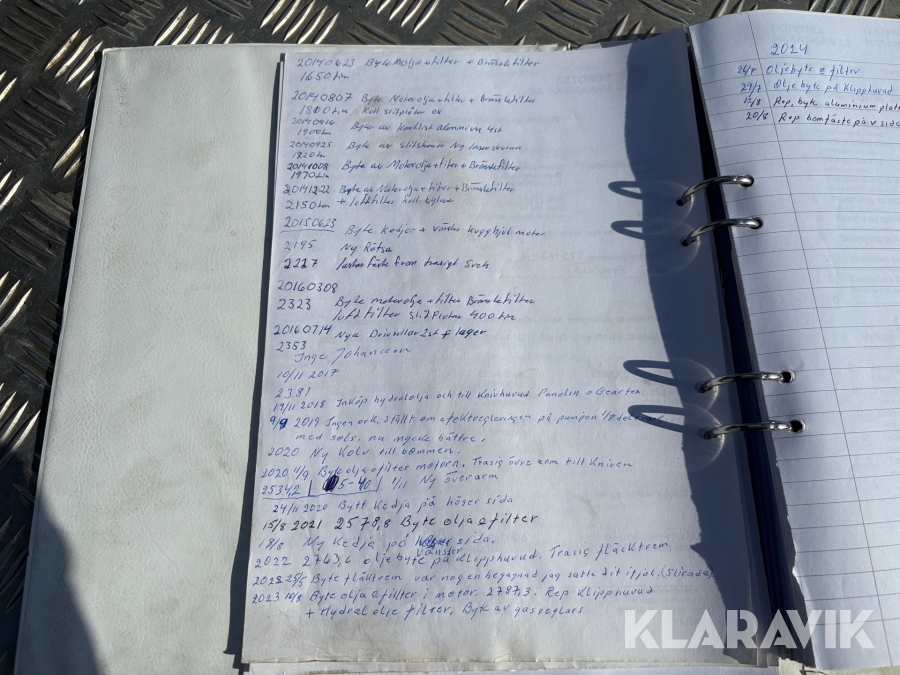 20140623 Byte Molja + filter + Bränslefilter
1650 tim
20140807 Byte Motorolja + filter + Bränslefilter
1800 tim Koll slitplåtar ok
20140916 Byte av aluminium 4st
1900 tim
20140925 Byte av Ny
1920 tim
20141008 Byte av Motorolja + filter + Bränslefilter
1970 tim
20141222 Byte av Motorolja + filter + Bränslefilter
2150 tim + luftfilter Koll
20150623 Byte Kedjor + kugghjul motor
2195 Ny Rätsa
2227 fäste fram trasigt Svets
20160308
2323 Byte motorolja + filter Bränslefilter
luftfilter Slitplåtar 400 tim
20160714 Nya Drivrullar 2st + lager
2353
Inge Johansson
10/11 2017
2381
19/11 2018 Inköp hydralolja och till Knivhuvud Panolin o Geartex
9/9 2019 Ingen ork. Ställt om på pumpen 1/8
med sols. nu mycke bättre.
2020 Ny Kolv till bommen.
2020 11/9 Byte olja o filter motorn. Trasig över arm till Kniven
2534,2 5-40 1/11 Ny överarm
24/11 2020 Bytt Kedja på höger sida
15/8 2021 2578,8 Byte olja o filter
18/8 Ny Kedja på sida.
vänster
2022 2763,6 oljebyte på Klipphuvud. Trasig fläktrem
2023 25/5 Byte fläktrem var nog en begagnad jag satte dit ifjol. (Slirade)
2023 10/8 Byte olja o filter i motor. 2787,3. Rep Klipphuvud
+ Hydral olje filter, Byte av gasreglage
2024
24/7 Oljebyte o filter
29/7 Oljebyte på Klipphuvud
12/8 Rep. byte aluminium
20/8 Rep bomfäste på v sida
KLARAVIK